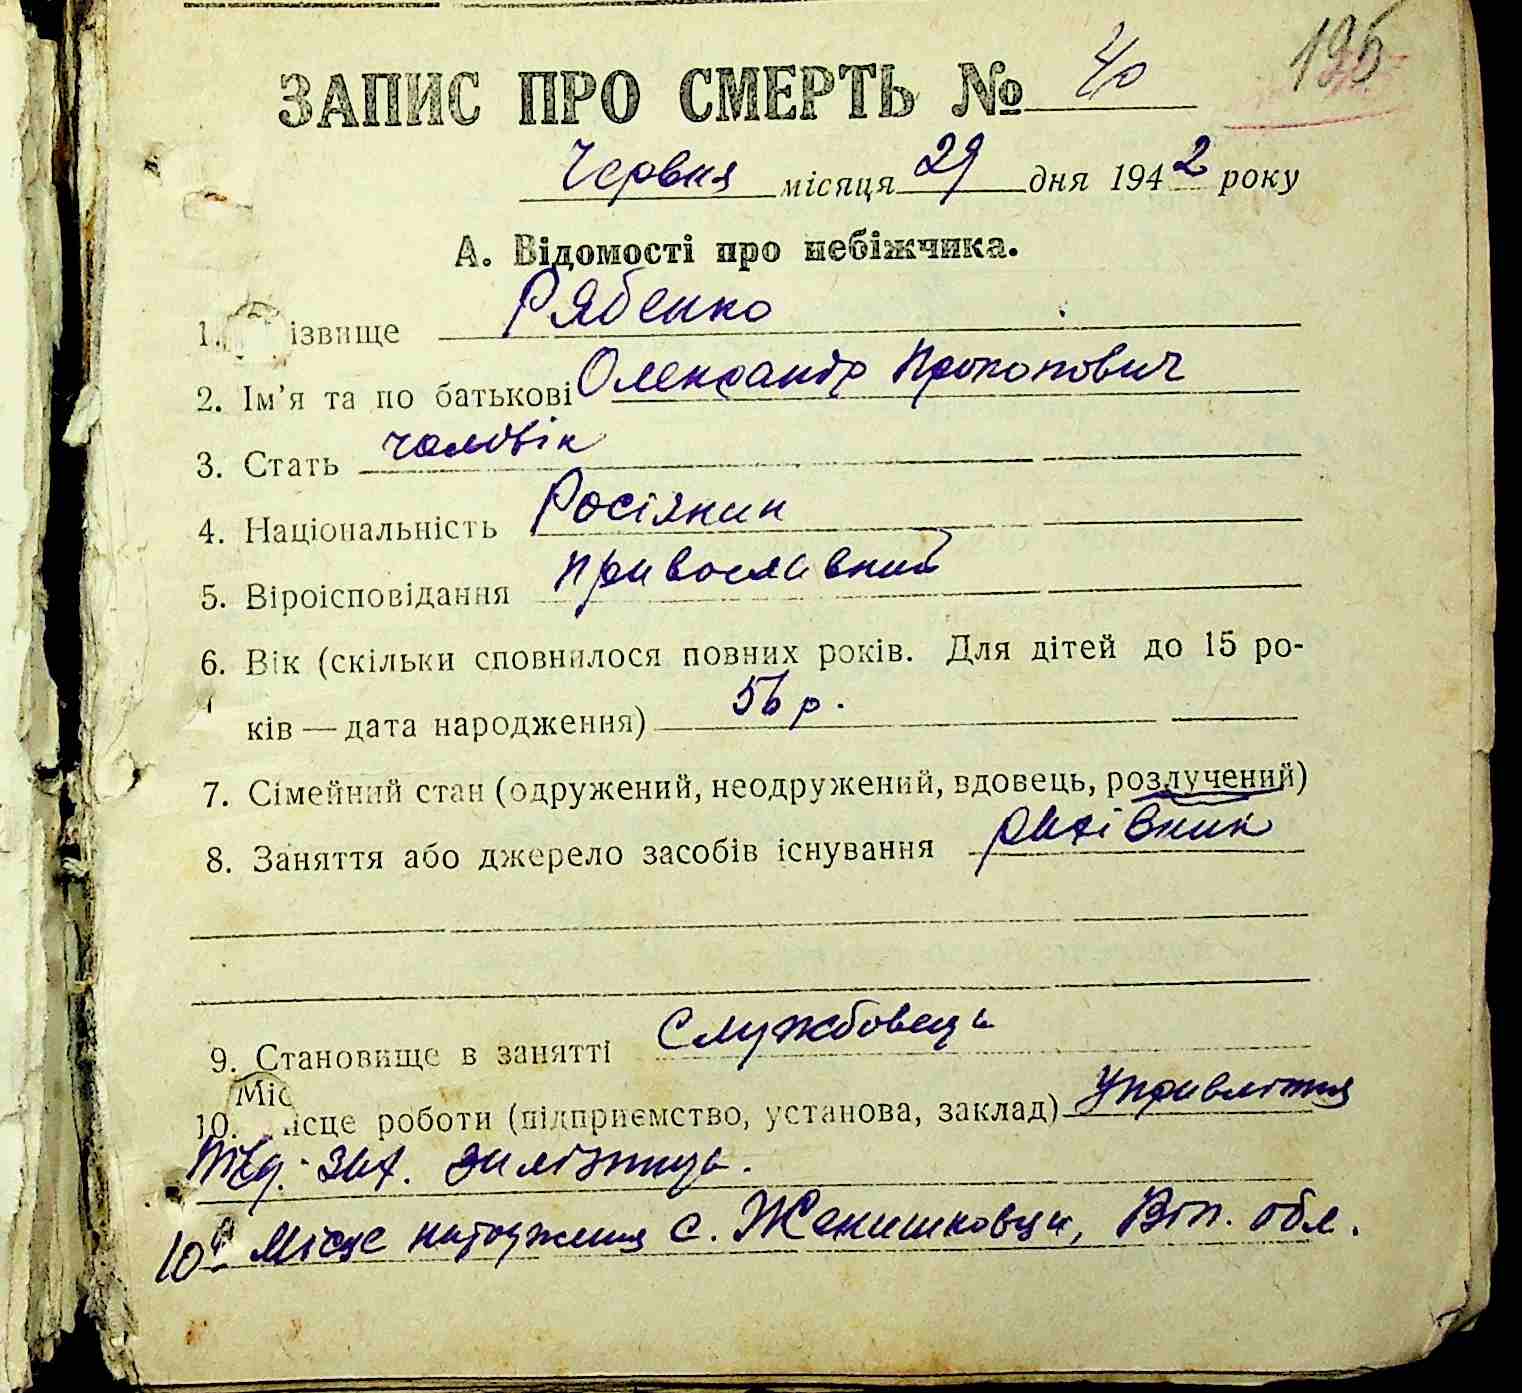 195
ЗАПИС ПРО СМЕРТЬ № 40
Червня місяця 29 дня 1942 року
А. Відомості про небіжчика.
1. ізвище Рябенко
2. Ім'я та по батькові Олександр Прокопович
3. Стать чоловік
4. Національність Росіянин
5. Віроісповідання православний
6. Вік (скільки сповнилося повних років. Для дітей до 15 ро-
ків — дата народження) 56 р.
7. Сімейний стан (одружений, неодружений, вдовець, розлучений)
8. Заняття або джерело засобів існування рахівник
9. Становище в занятті Службовець
Міс
10. ісце роботи (підприємство, установа, заклад) Управління
Півд.-Зах. Залізниць.
10а Місце народження с. Женишковци, Він. обл.